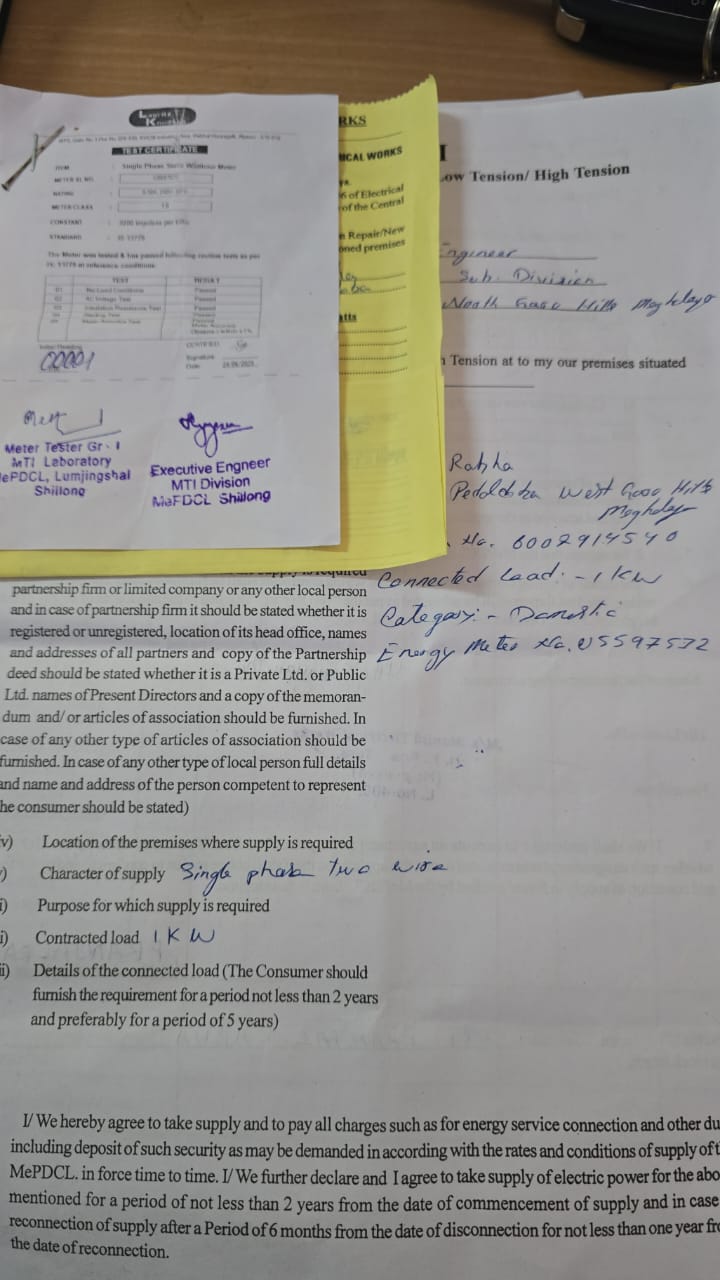 TEST CERTIFICATE
ITEM : Single Phase Static
METER SL NO.
RATING
METER CLASS
CONSTANT : 3200
STANDARD : IS 13779
The Meter was tested & has passed following routine tests as per
IS 13779 at reference conditions
TEST RESULT
01 No Load Conditions Passed
02 AC Voltage Test Passed
03 Insulation Resistance Test Passed
04 Passed
05 Passed
CERTIFIED
00001 Signature
Date
Meter Tester Gr - I
MTI Laboratory
ePDCL, Lumjingshai
Shillong
Executive Engneer
MTI Division
MePDCL Shillong
RKS
ICAL WORKS
of Electrical
of the Central
n Repair/New
oned premises
atts
I
ow Tension/ High Tension
Engineer
Sub. Division
North Garo Hills Meghalaya
n Tension at to my our premises situated
Rabha
West Garo Hills
Meghalay
No. 6002914540
Connected Load. - 1 KW
Category: - Domestic
Energy Meter No. U5597532
partnership firm or limited company or any other local person
and in case of partnership firm it should be stated whether it is
registered or unregistered, location of its head office, names
and addresses of all partners and copy of the Partnership
deed should be stated whether it is a Private Ltd. or Public
Ltd. names of Present Directors and a copy of the memoran-
dum and/ or articles of association should be furnished. In
case of any other type of articles of association should be
furnished. In case of any other type of local person full details
and name and address of the person competent to represent
he consumer should be stated)
v) Location of the premises where supply is required
) Character of supply Single phase two wire
i) Purpose for which supply is required
i) Contracted load 1 KW
ii) Details of the connected load (The Consumer should
furnish the requirement for a period not less than 2 years
and preferably for a period of 5 years)
I/ We hereby agree to take supply and to pay all charges such as for energy service connection and other du
including deposit of such security as may be demanded in according with the rates and conditions of supply of t
MePDCL. in force time to time. I/ We further declare and I agree to take supply of electric power for the abo
mentioned for a period of not less than 2 years from the date of commencement of supply and in case
reconnection of supply after a Period of 6 months from the date of disconnection for not less than one year fro
the date of reconnection.